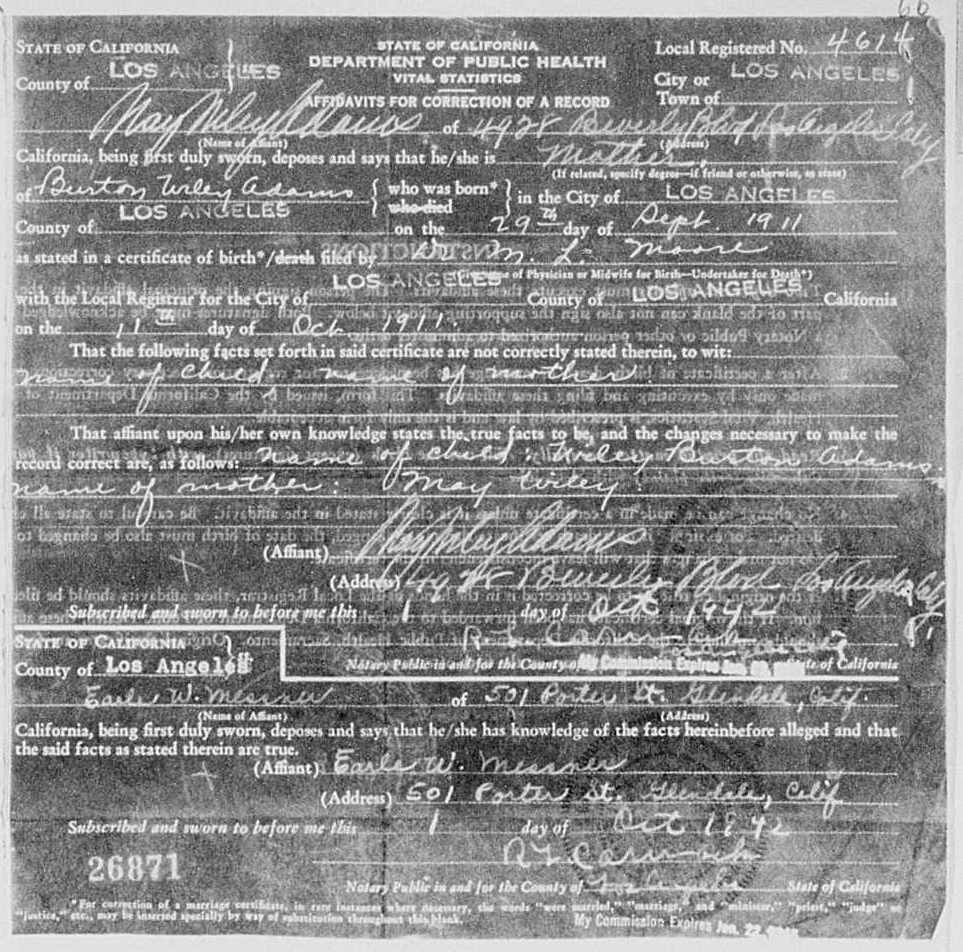 66
STATE OF CALIFORNIA
County of LOS ANGELES
STATE OF CALIFORNIA
DEPARTMENT OF PUBLIC HEALTH
VITAL STATISTICS
AFFIDAVITS FOR CORRECTION OF A RECORD
Local Registered No. 4614
City or Town of LOS ANGELES
May Wiley Adams of Beverly Blvd Los Angeles Calif
(Name of Affiant) (Address)
California, being first duly sworn, deposes and says that he/she is Mother,
(If related, specify degree—if friend or otherwise, so state)
of Burton Wiley Adams { who was born* who died } in the City of LOS ANGELES
County of LOS ANGELES on the 29th day of Sept. 1911
as stated in a certificate of birth*/death filed by M. L. Moore
(Give name of Physician or Midwife for Birth—Undertaker for Death*)
with the Local Registrar for the City of LOS ANGELES County of LOS ANGELES California
on the 11th day of Oct 1911.
That the following facts set forth in said certificate are not correctly stated therein, to wit:
name of child. name of mother.
That affiant upon his/her own knowledge states the true facts to be, and the changes necessary to make the
record correct are, as follows: name of child: Wiley Burton Adams.
name of mother: May Wiley
(Affiant) May Wiley Adams
(Address) Beverly Blvd Los Angeles Calif
Subscribed and sworn to before me this 1 day of Oct 1942
Notary Public in and for the County of State of California
My Commission Expires Jan.
STATE OF CALIFORNIA
County of Los Angeles
Earle W. Messner of 501 Porter St. Glendale, Calif.
(Name of Affiant) (Address)
California, being first duly sworn, deposes and says that he/she has knowledge of the facts hereinbefore alleged and that
the said facts as stated therein are true.
(Affiant) Earle W. Messner
(Address) 501 Porter St. Glendale, Calif
Subscribed and sworn to before me this 1 day of Oct 1942
26871
Notary Public in and for the County of Los Angeles State of California
*For correction of a marriage certificate, in rare instances where necessary, the words "were married," "marriage," and "minister," "priest," "judge" or
"justice," etc., may be inserted specially by way of substitution throughout this blank.
My Commission Expires Jan. 22,